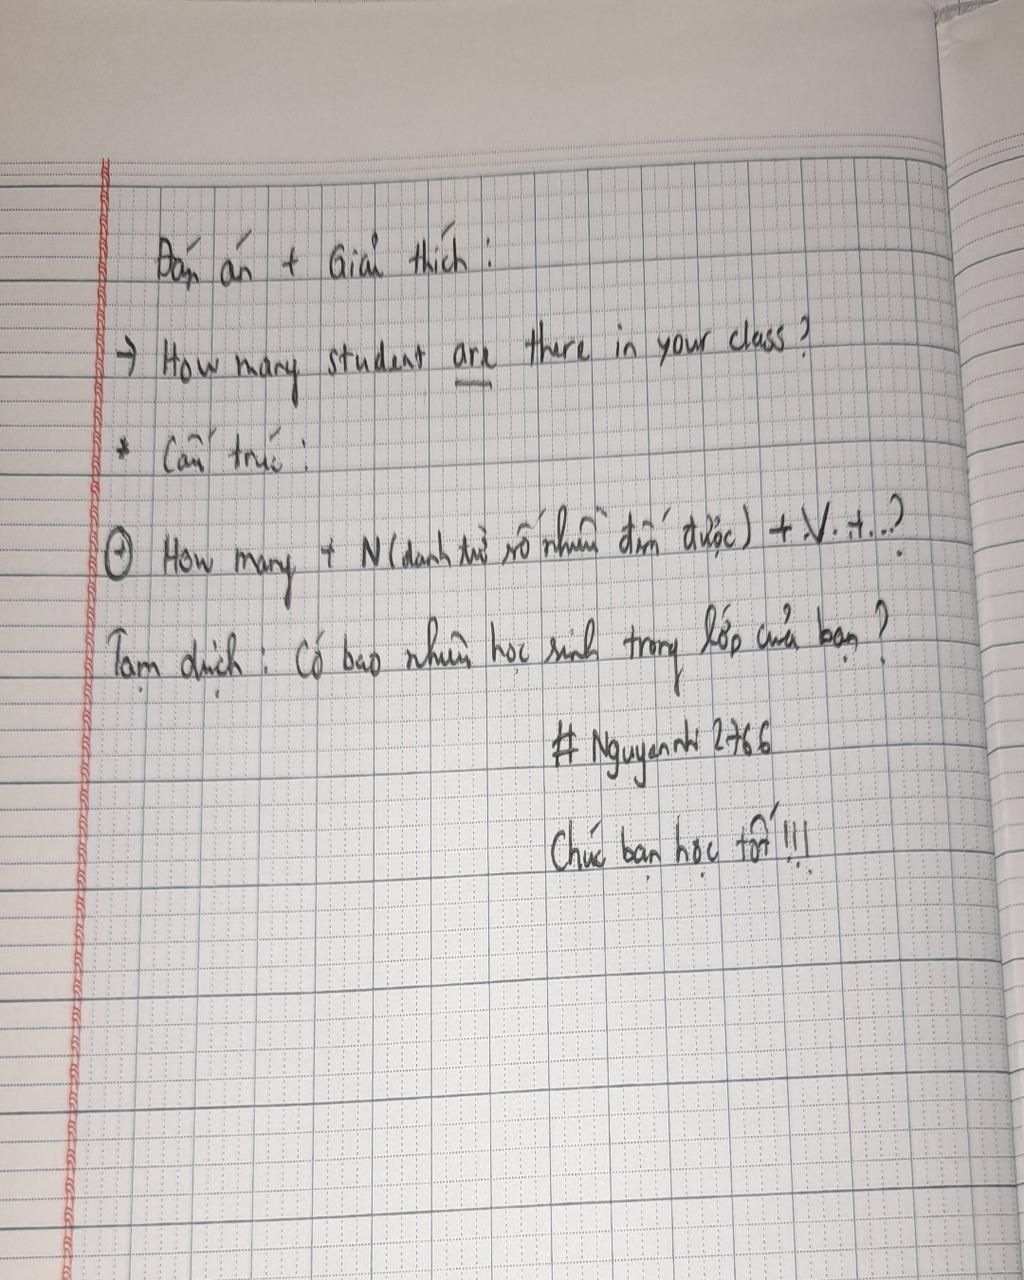 Đáp án + Giải thích :
→ How many student are there in your class?
* Cấu trúc :
⊕ How many + N(danh từ số nhiều đếm được) + V.+..?
Tạm dịch : Có bao nhiêu học sinh trong lớp của bạn ?
# Nguyennhi 2766
Chúc bạn học tốt !!!